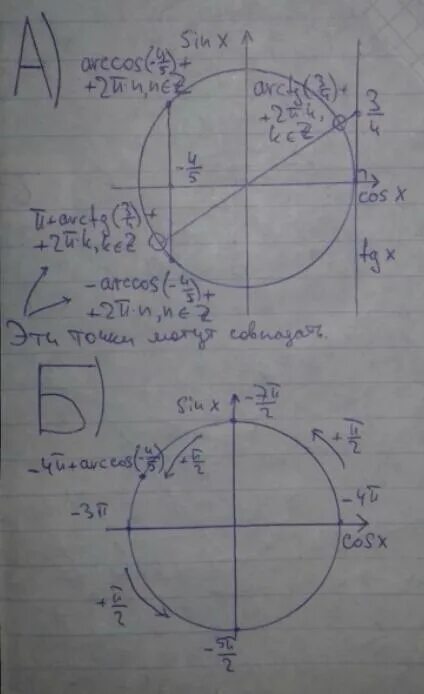 А)
sin x
arccos(-4/5)+
+2π·n, n∈Z
arctg(3/4)+
+2π·k,
k∈Z
3/4
-4/5
cos x
π+arctg(3/4)+
+2π·k, k∈Z
tg x
-arccos(-4/5)+
+2π·n, n∈Z
Эти точки могут совпадать.
Б)
sin x
-7π/2
+π/2
+π/2
-4π+arccos(-4/5)
-3π
-4π
cos x
+π/2
-5π/2